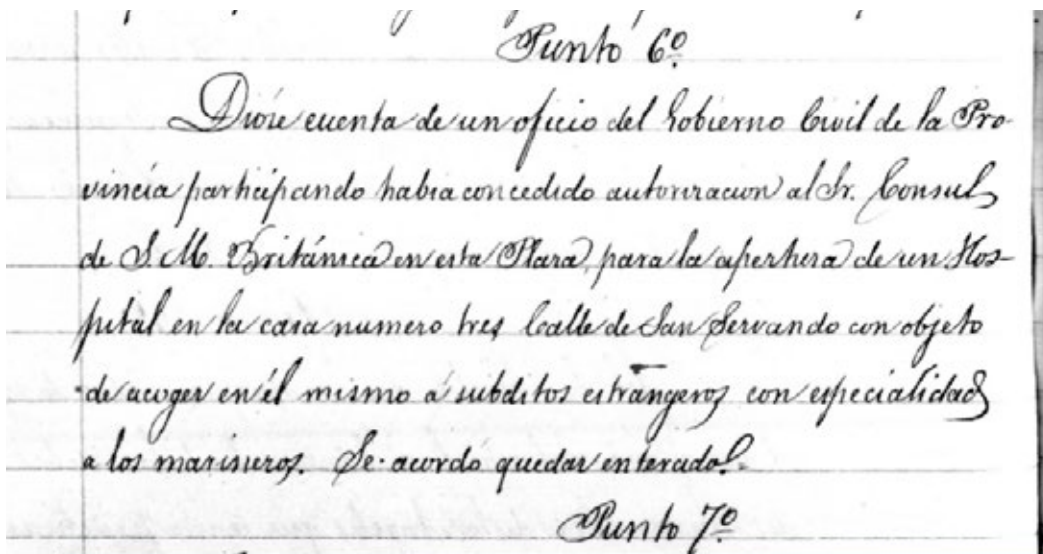 Punto 6º
Dióse cuenta de un oficio del Gobierno Civil de la Pro-
vincia participando habia concedido autorizacion al Sr. Consul
de S. M. Británica en esta Plaza, para la apertura de un Hos-
pital en la casa numero tres Calle de San Servando con objeto
de acoger en él mismo á subditos estrangeros con especialidad
a los marineros. Se acordo quedar enterado.
Punto 7º